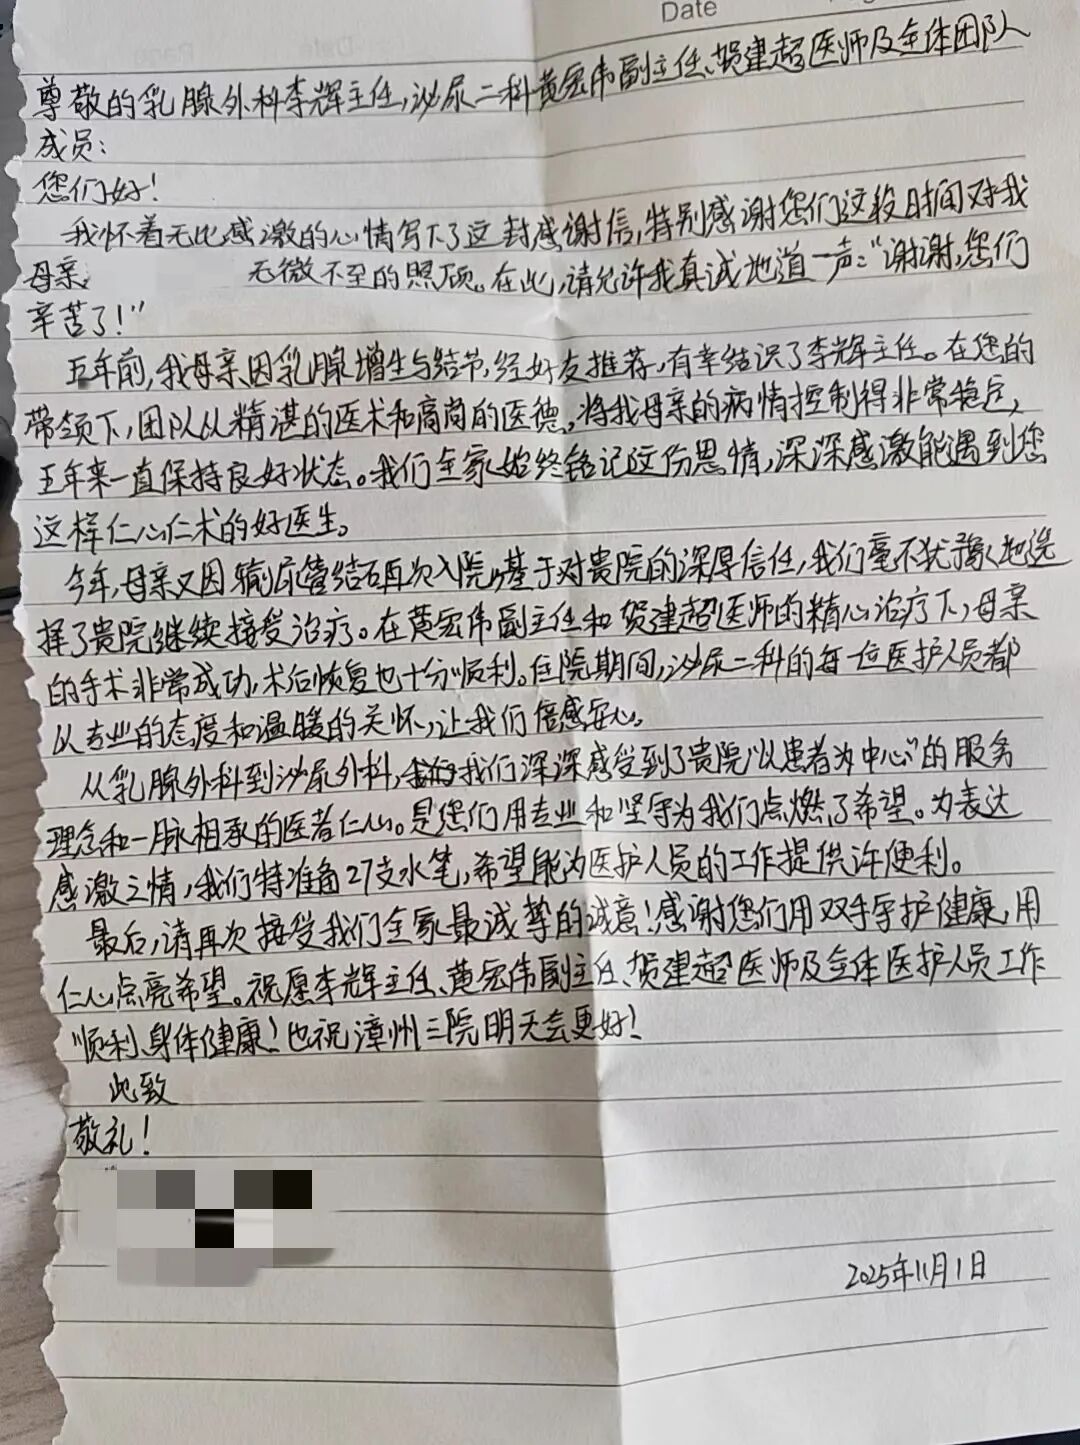 Date
尊敬的乳腺外科李辉主任,泌尿二科黄宏伟副主任、贺建超医师及全体团队
成员:
您们好!
我怀着无比感激的心情写下了这封感谢信,特别感谢您们这段时间对我
母亲 无微不至的照顾。在此,请允许我真诚地道一声:“谢谢,您们
辛苦了!”
五年前,我母亲因乳腺增生与结节,经好友推荐,有幸结识了李辉主任。在您的
带领下,团队以精湛的医术和高尚的医德,将我母亲的病情控制得非常稳定,
五年来一直保持良好状态。我们全家始终铭记这份恩情,深深感激能遇到您
这样仁心仁术的好医生。
今年,母亲又因输尿管结石再次入院,基于对贵院的深厚信任,我们毫不犹豫地选
择了贵院继续接受治疗。在黄宏伟副主任和贺建超医师的精心治疗下,母亲
的手术非常成功,术后恢复也十分顺利。住院期间,泌尿二科的每一位医护人员都
以专业的态度和温暖的关怀,让我们倍感安心。
从乳腺外科到泌尿外科,我们深深感受到了贵院“以患者为中心”的服务
理念和一脉相承的医者仁心。是您们用专业和坚守为我们点燃了希望。为表达
感激之情,我们特准备27支水笔,希望能为医护人员的工作提供许便利。
最后,请再次接受我们全家最诚挚的诚意!感谢您们用双手守护健康,用
仁心点亮希望。祝愿李辉主任、黄宏伟副主任、贺建超医师及全体医护人员工作
顺利、身体健康!也祝漳州三院明天会更好!
此致
敬礼!
2025年11月1日